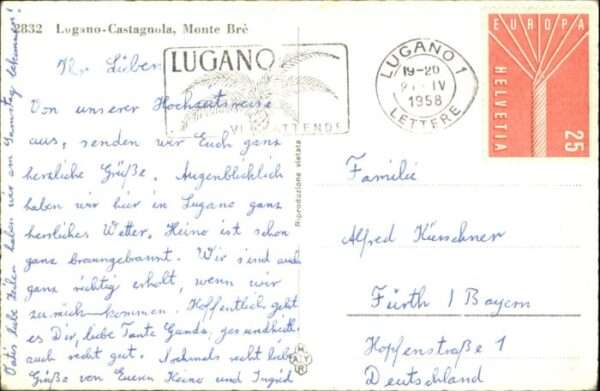 2832 Lugano-Castagnola, Monte Brè
Ihr Lieben
Von unserer Hochzeitsreise
aus, senden wir Euch ganz
herzliche Grüße. Augenblicklich
haben wir hier in Lugano ganz
herrliches Wetter. Heino ist schon
ganz braungebrannt. Wir sind auch
ganz richtig erholt, wenn wir
zurück kommen. Hoffentlich geht
es Dir, liebe Tante Gunda, gesundheitl.
auch recht gut. Nochmals recht liebe
Grüße von Euern Heino und Ingrid
liebe Zeilen haben wir am Samstag bekommen!
LUGANO
VI ATTENDE
LUGANO 1
19-20
IV
1958
LETTERE
EUROPA
HELVETIA
25
Riproduzione vietata
Familie
Alfred Kürschner
Fürth / Bayern
Hopfenstraße 1
Deutschland